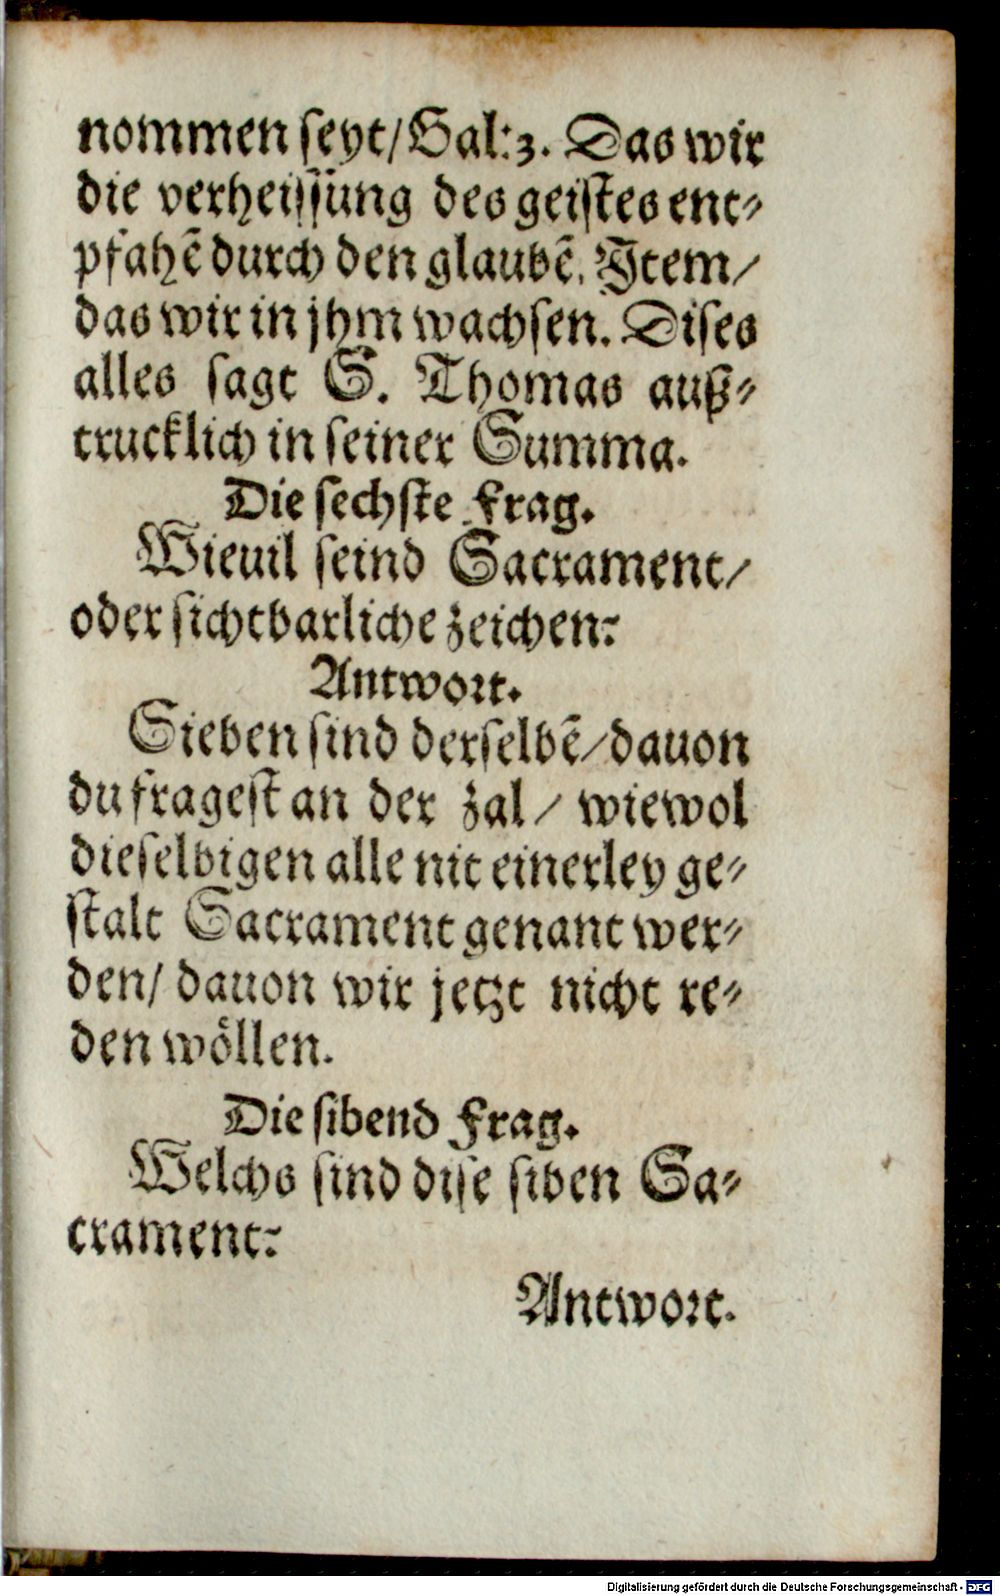 nommen seyt/Gal:3. Das wir
die verheissung des geistes ent⸗
pfahẽ durch den glaubẽ. Item/
das wir in jhm wachsen. Dises
alles sagt S. Thomas auß⸗
trucklich in seiner Summa.
Die sechste Frag.
Wieuil seind Sacrament/
oder sichtbarliche zeichen?
Antwort.
Sieben sind derselbẽ/dauon
du fragest an der zal/ wiewol
dieselbigen alle nit einerley ge⸗
stalt Sacrament genant wer⸗
den/ dauon wir jetzt nicht re⸗
den wöllen.
Die sibend Frag.
Welchs sind dise siben Sa⸗
crament?
Antwort.
Digitalisierung gefördert durch die Deutsche Forschungsgemeinschaft - DFG